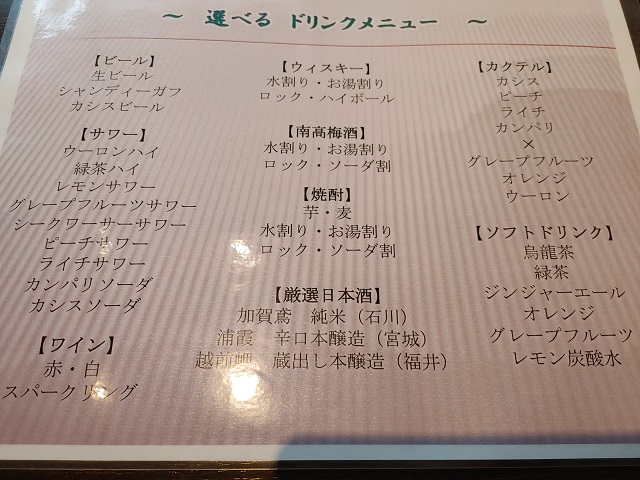 ～ 選べる ドリンクメニュー ～
【ビール】
生ビール
シャンディーガフ
カシスビール
【サワー】
ウーロンハイ
緑茶ハイ
レモンサワー
グレープフルーツサワー
シークワーサーサワー
ピーチサワー
ライチサワー
カンパリソーダ
カシスソーダ
【ワイン】
赤・白
スパークリング
【ウィスキー】
水割り・お湯割り
ロック・ハイボール
【南高梅酒】
水割り・お湯割り
ロック・ソーダ割
【焼酎】
芋・麦
水割り・お湯割り
ロック・ソーダ割
【厳選日本酒】
加賀鳶 純米（石川）
浦霞 辛口本醸造（宮城）
越前岬 蔵出し本醸造（福井）
【カクテル】
カシス
ピーチ
ライチ
カンパリ
×
グレープフルーツ
オレンジ
ウーロン
【ソフトドリンク】
烏龍茶
緑茶
ジンジャーエール
オレンジ
グレープフルーツ
レモン炭酸水